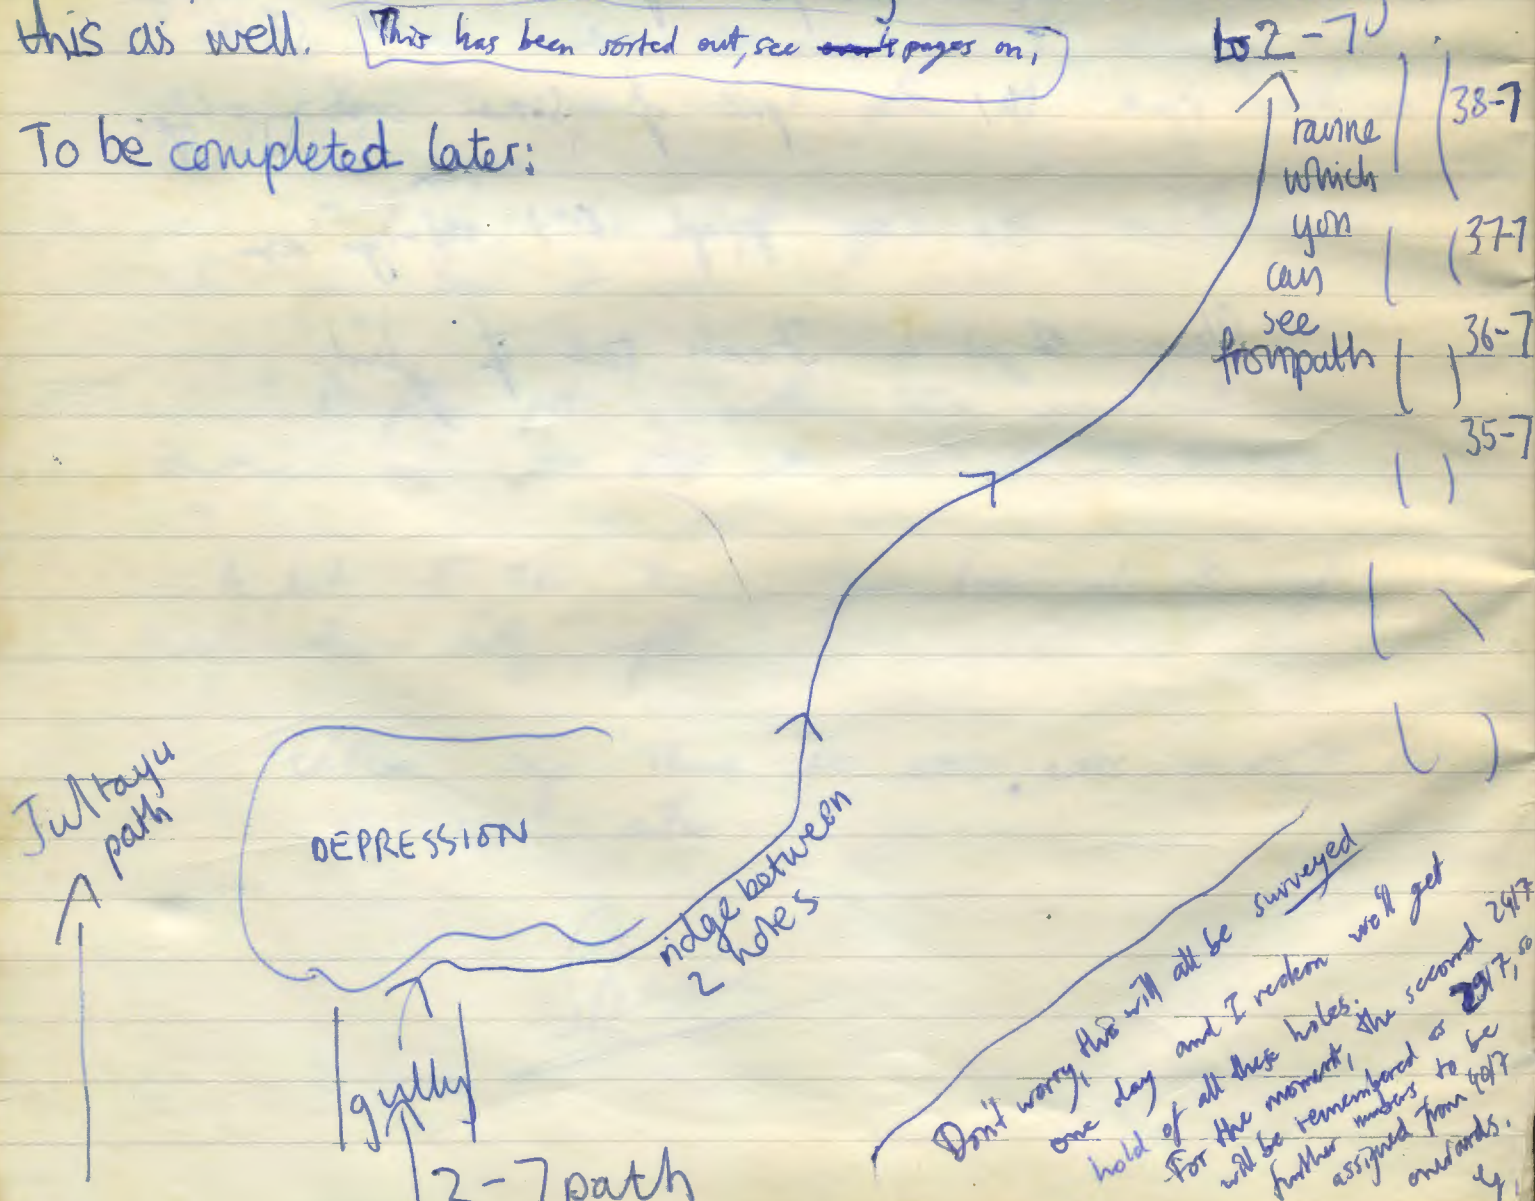 this as well. This has been sorted out, see 4 pages on,
to 2-7
To be completed later:
ravine
which
you
can
see
from path
38-7
37-7
36-7
35-7
Jultayu
path
DEPRESSION
ridge between
2 holes
gully
2-7 path
Don't worry, this will all be surveyed
one day and I reckon we'll get
hold of all these holes.
For the moment, the second 24/7
will be remembered as 29/7, so
further numbers to be
assigned from 40/7
onwards.